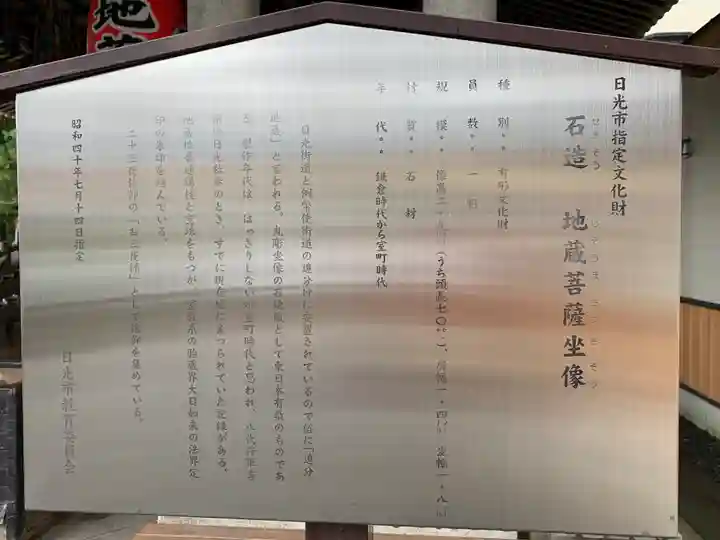 日光市指定文化財
石造 地蔵菩薩坐像
種別・・有形文化財
員数・・一
規模・・像高二・ (うち頭長七〇㌢)、 幅一・四 、 幅一・八
材質・・石材
年代・・鎌倉時代から室町時代
日光街道と例幣使街道の追分けに安置されているので俗に「追分
地蔵」と言われる。丸彫坐像の石地蔵として東日本有数のものであ
る。製作年代は、はっきりしないが室町時代と思われ、
日光社参のとき、すでに現在地にまつられていた記録がある。
をもつが、 系の胎蔵界大日如来の法界定
印の 印を結んでいる。
二十三 の「お 」として信仰を集めている。
昭和四十年七月十四日指定
日光市教育委員会
地蔵